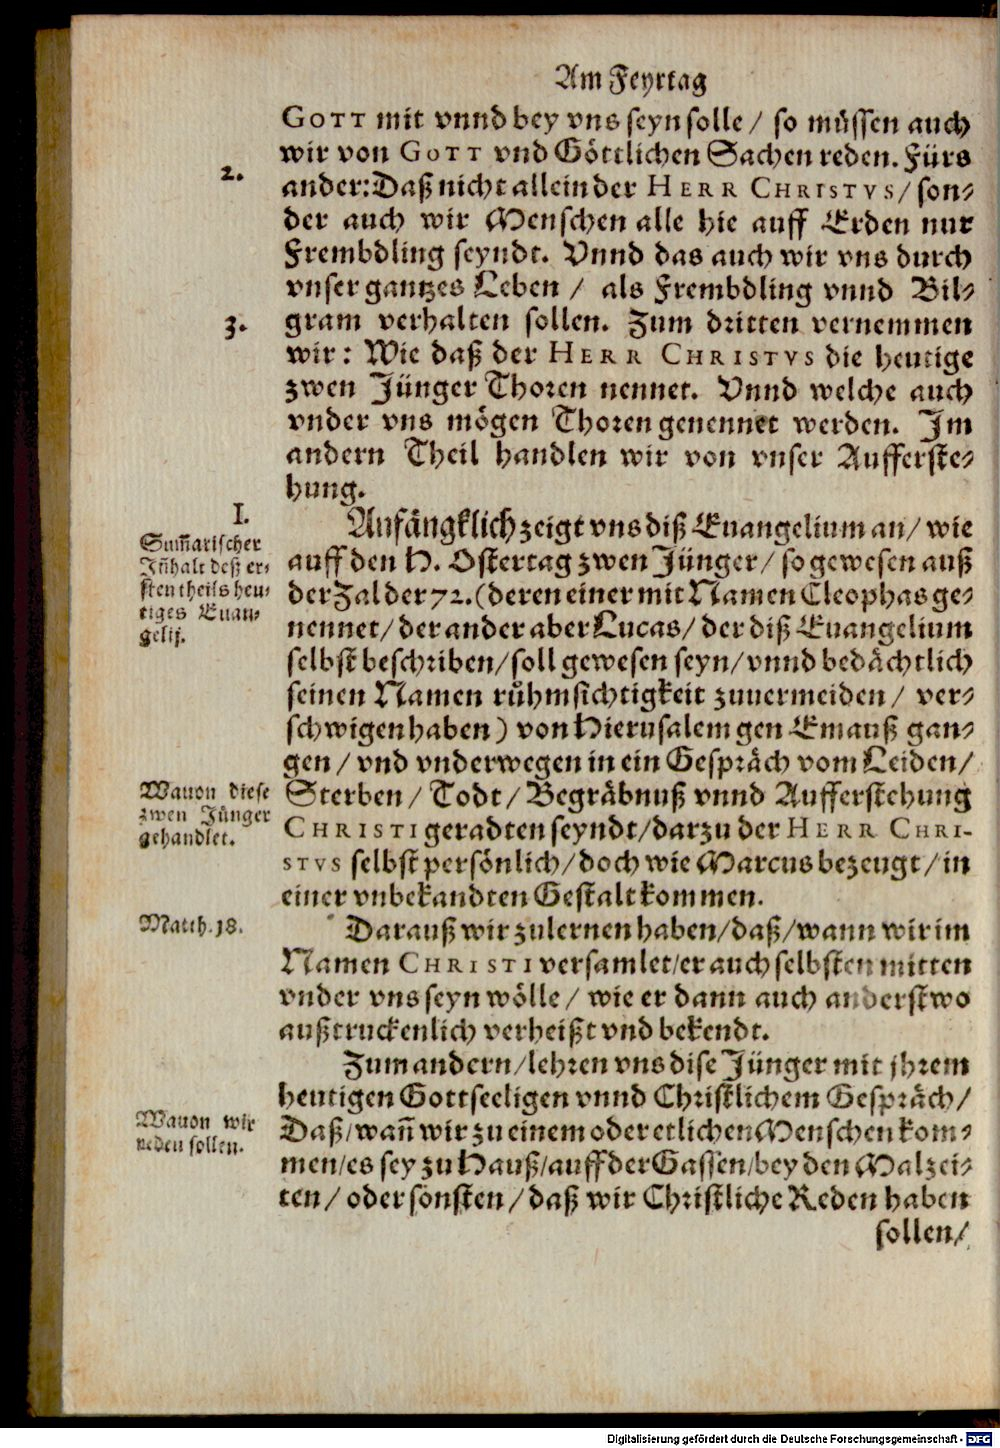 Am Feyrtag
GOTT mit vnnd bey vns seyn solle / so müssen auch
wir von GOTT vnd Göttlichen Sachen reden. Fürs
2.
ander: Daß nicht allein der HERR CHRISTVS / son-
der auch wir Menschen alle hie auff Erden nur
Frembdling seyndt. Vnnd das auch wir vns durch
vnser gantzes Leben / als Frembdling vnnd Bil-
3.
gram verhalten sollen. Zum dritten vernemmen
wir: Wie daß der HERR CHRISTVS die heutige
zwen Jünger Thoren nennet. Vnnd welche auch
vnder vns mögen Thoren genennet werden. Im
andern Theil handlen wir von vnser Aufferste-
hung.
I.
Sum̃arischer
Iñhalt deß er-
sten theils heu-
tiges Euan-
gelij.
Anfängklich zeigt vns diß Euangelium an / wie
auff den H. Ostertag zwen Jünger / so gewesen auß
der Zal der 72. (deren einer mit Namen Cleophas ge-
nennet / der ander aber Lucas / der diß Euangelium
selbst beschriben / soll gewesen seyn / vnnd bedächtlich
seinen Namen růhmsichtigkeit zuuermeiden / ver-
schwigen haben) von Hierusalem gen Emauß gan-
gen / vnd vnderwegen in ein Gespräch vom Leiden /
Wauon diese
zwen Jünger
gehandlet.
Sterben / Todt / Begräbnuß vnnd Aufferstehung
CHRISTI geradten seyndt / darzu der HERR CHRI-
STVS selbst persönlich / doch wie Marcus bezeugt / in
einer vnbekandten Gestalt kommen.
Matth. 18.
Darauß wir zulernen haben / daß / wann wir im
Namen CHRISTI versamlet / er auch selbsten mitten
vnder vns seyn wölle / wie er dann auch anderstwo
außtruckenlich verheißt vnd bekendt.
Zum andern / lehren vns dise Jünger mit jhrem
heutigen Gottseeligen vnnd Christlichem Gespräch /
Wauon wir
reden sollen.
Daß / wañ wir zu einem oder etlichen Menschen kom-
men / es sey zu Hauß / auff der Gassen / bey den Malzei-
ten / oder sonsten / daß wir Christliche Reden haben
sollen /
Digitalisierung gefördert durch die Deutsche Forschungsgemeinschaft - DFG